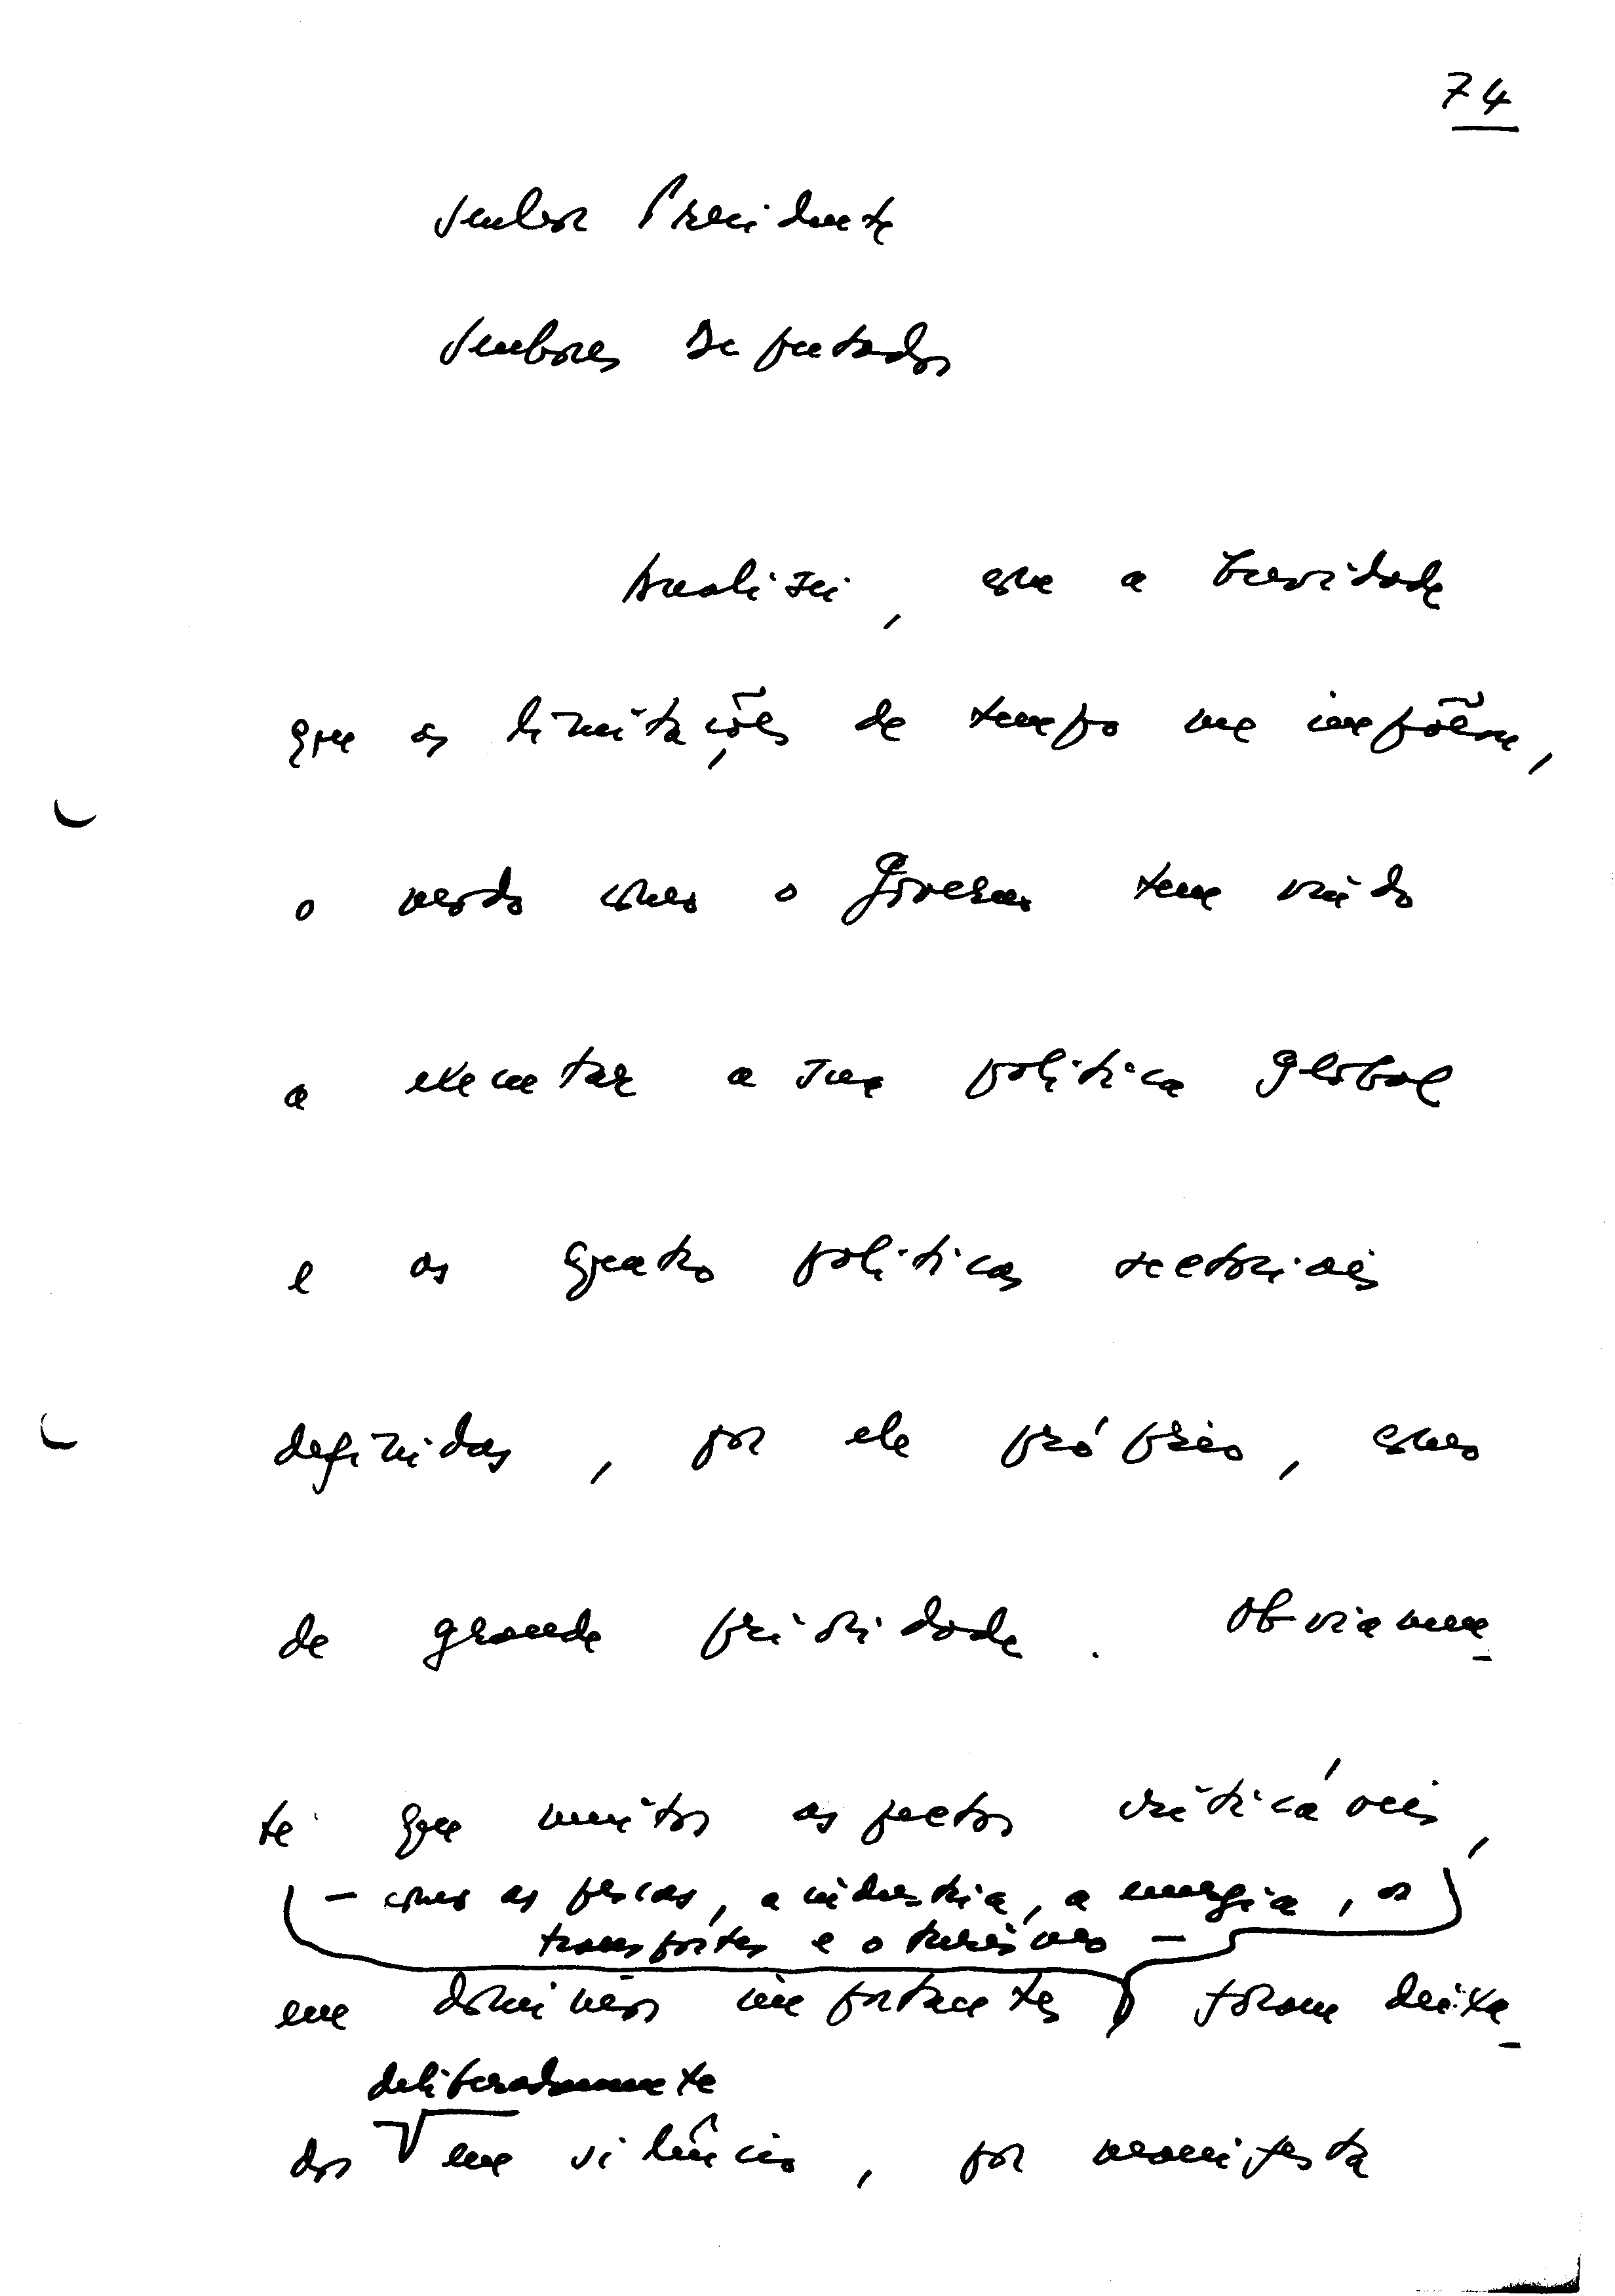 74
Senhor Presidente
Senhores Deputados
Analisei, com a brevidade
que as limitações de tempo me impõem,
o modo como o Governo tem vindo
a executar a sua política global
e as quatro políticas sectoriais
definidas, por ele próprio, como
de grande prioridade. Obviamen-
te que muitos aspectos criticáveis,
- como as pescas, a indústria, a energia, os
transportes e o turismo -
em domínios importantes foram deixa-
deliberadamente
dos em silêncio, por manifesta